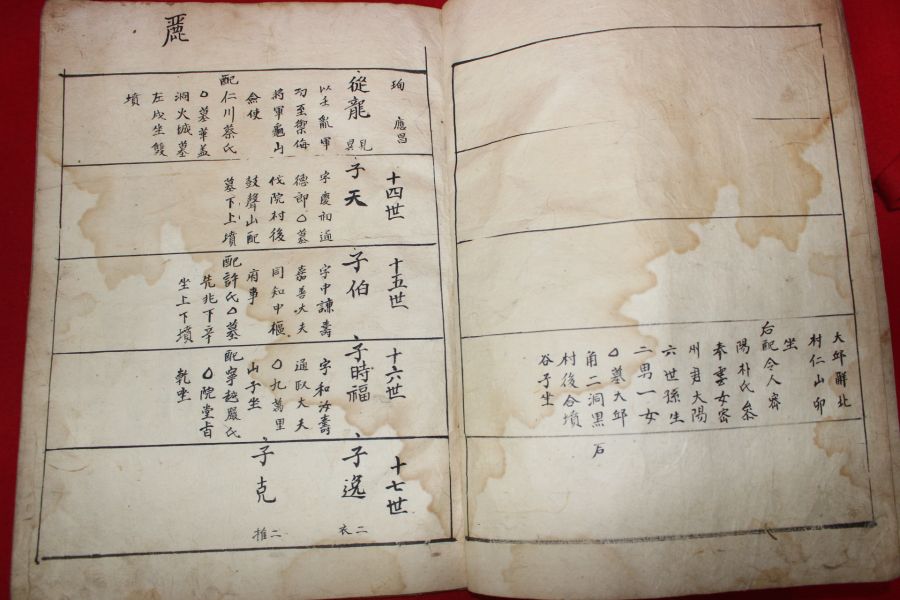 大邱解北
村仁山卯
坐
后配令人密
陽朴氏叅
奉雲女密
州君大陽
六世孫生
二男一女
○墓大邱
角二洞黑石
村後合墳
谷子坐
麗
珣 應昌
從龍
見
以壬亂軍
功至禦侮
將軍龜山
僉使
配仁川蔡氏
○墓華盖
洞火城墓
左戌坐雙
墳
十四世
子天
字慶初通
德郞○墓
伐院村後
鼓聲山配
墓下上墳
十五世
子伯
字中謙壽
嘉善大夫
同知中樞
府事
配許氏○墓
先兆下辛
坐上下墳
十六世
子時福
字和汝壽
通政大夫
○九萬里
山子坐
配寧越嚴氏
○院堂
乾坐
十七世
子逸
二衣
子克
二推